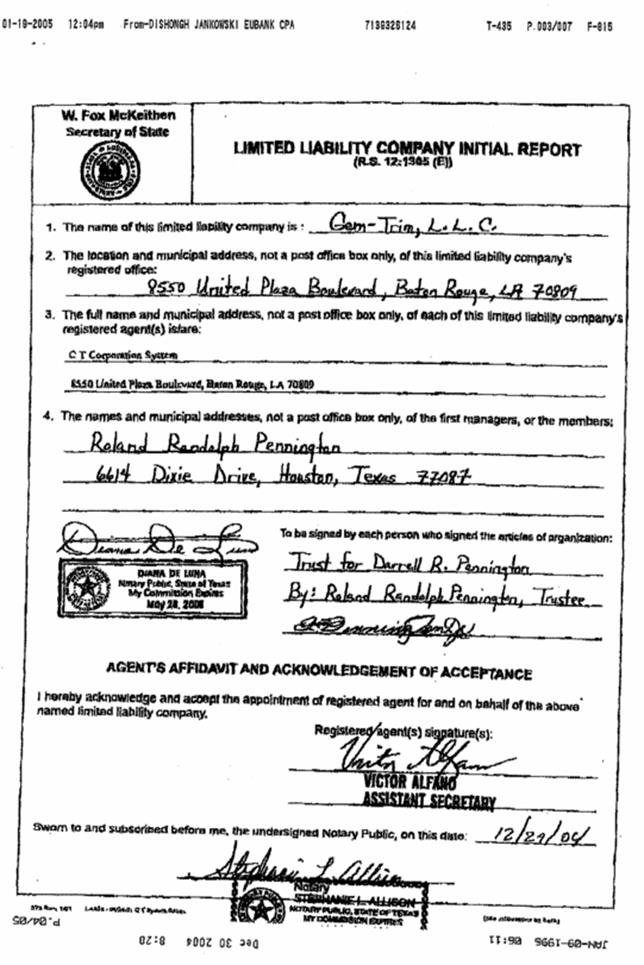 01-19-2005 12:04pm From-DISHONGH JANKOWSKI EUBANK CPA 7136326124 T-435 P.003/007 F-815
W. Fox McKeithen
Secretary of State
LIMITED LIABILITY COMPANY INITIAL REPORT
(R.S. 12:1305 (E))
1. The name of this limited liability company is : Gem-Trim, L.L.C.
2. The location and municipal address, not a post office box only, of this limited liability company's
registered office:
8550 United Plaza Boulevard, Baton Rouge, LA 70809
3. The full name and municipal address, not a post office box only, of each of this limited liability company's
registered agent(s) is/are:
C T Corporation System
8550 United Plaza Boulevard, Baton Rouge, LA 70809
4. The names and municipal addresses, not a post office box only, of the first managers, or the members:
Roland Randolph Pennington
6614 Dixie Drive, Houston, Texas 77087
Diana De Luna
DIANA DE LUNA
Notary Public, State of Texas
My Commission Expires
May 28, 2008
To be signed by each person who signed the articles of organization:
Trust for Darrell R. Pennington
By: Roland Randolph Pennington, Trustee
AGENT'S AFFIDAVIT AND ACKNOWLEDGEMENT OF ACCEPTANCE
I hereby acknowledge and accept the appointment of registered agent for and on behalf of the above
named limited liability company.
Registered agent(s) signature(s):
Victor Alfano
VICTOR ALFANO
ASSISTANT SECRETARY
Sworn to and subscribed before me, the undersigned Notary Public, on this date: 12/29/04
Stephanie L. Allison
Notary
STEPHANIE L. ALLISON
NOTARY PUBLIC, STATE OF TEXAS
MY COMMISSION EXPIRES
P.04/05
Dec 30 2004 8:20
JAN-09-1996 06:11